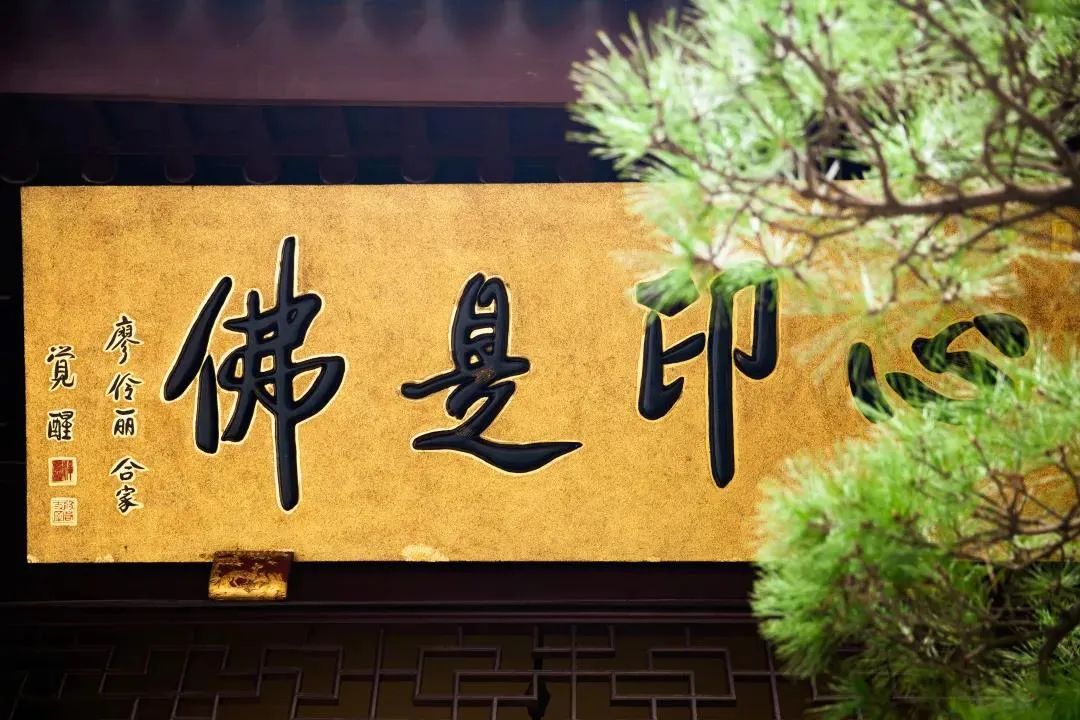 心印是佛
廖伶丽合家
觉醒